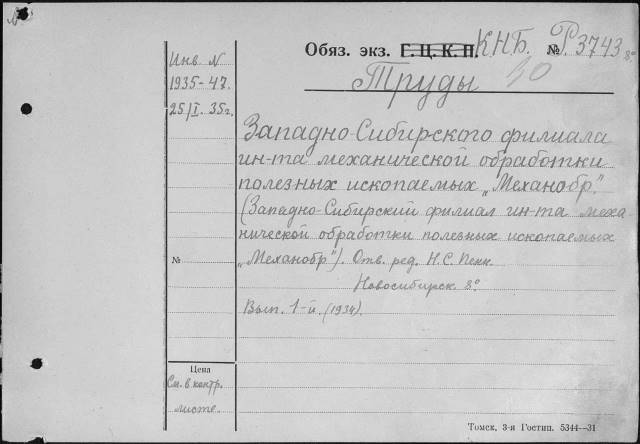 Обяз. экз. Г. Ц. К. П. К.Н.Б. № Р. 3743 8°
Труды 10
Инв N
1935-47.
25/I. 35г.
Западно-Сибирского филиала
ин-та механической обработки
полезных ископаемых „Механобр."
(Западно-Сибирский филиал ин-та меха-
нической обработки полезных ископаемых
„Механобр"). Отв. ред. Н.С. Пенн.
Новосибирск. 8°.
Вып. 1-й. (1934).
№
Цена
См. в контр.
листе.
Томск, 3-я Гостип. 5344—31